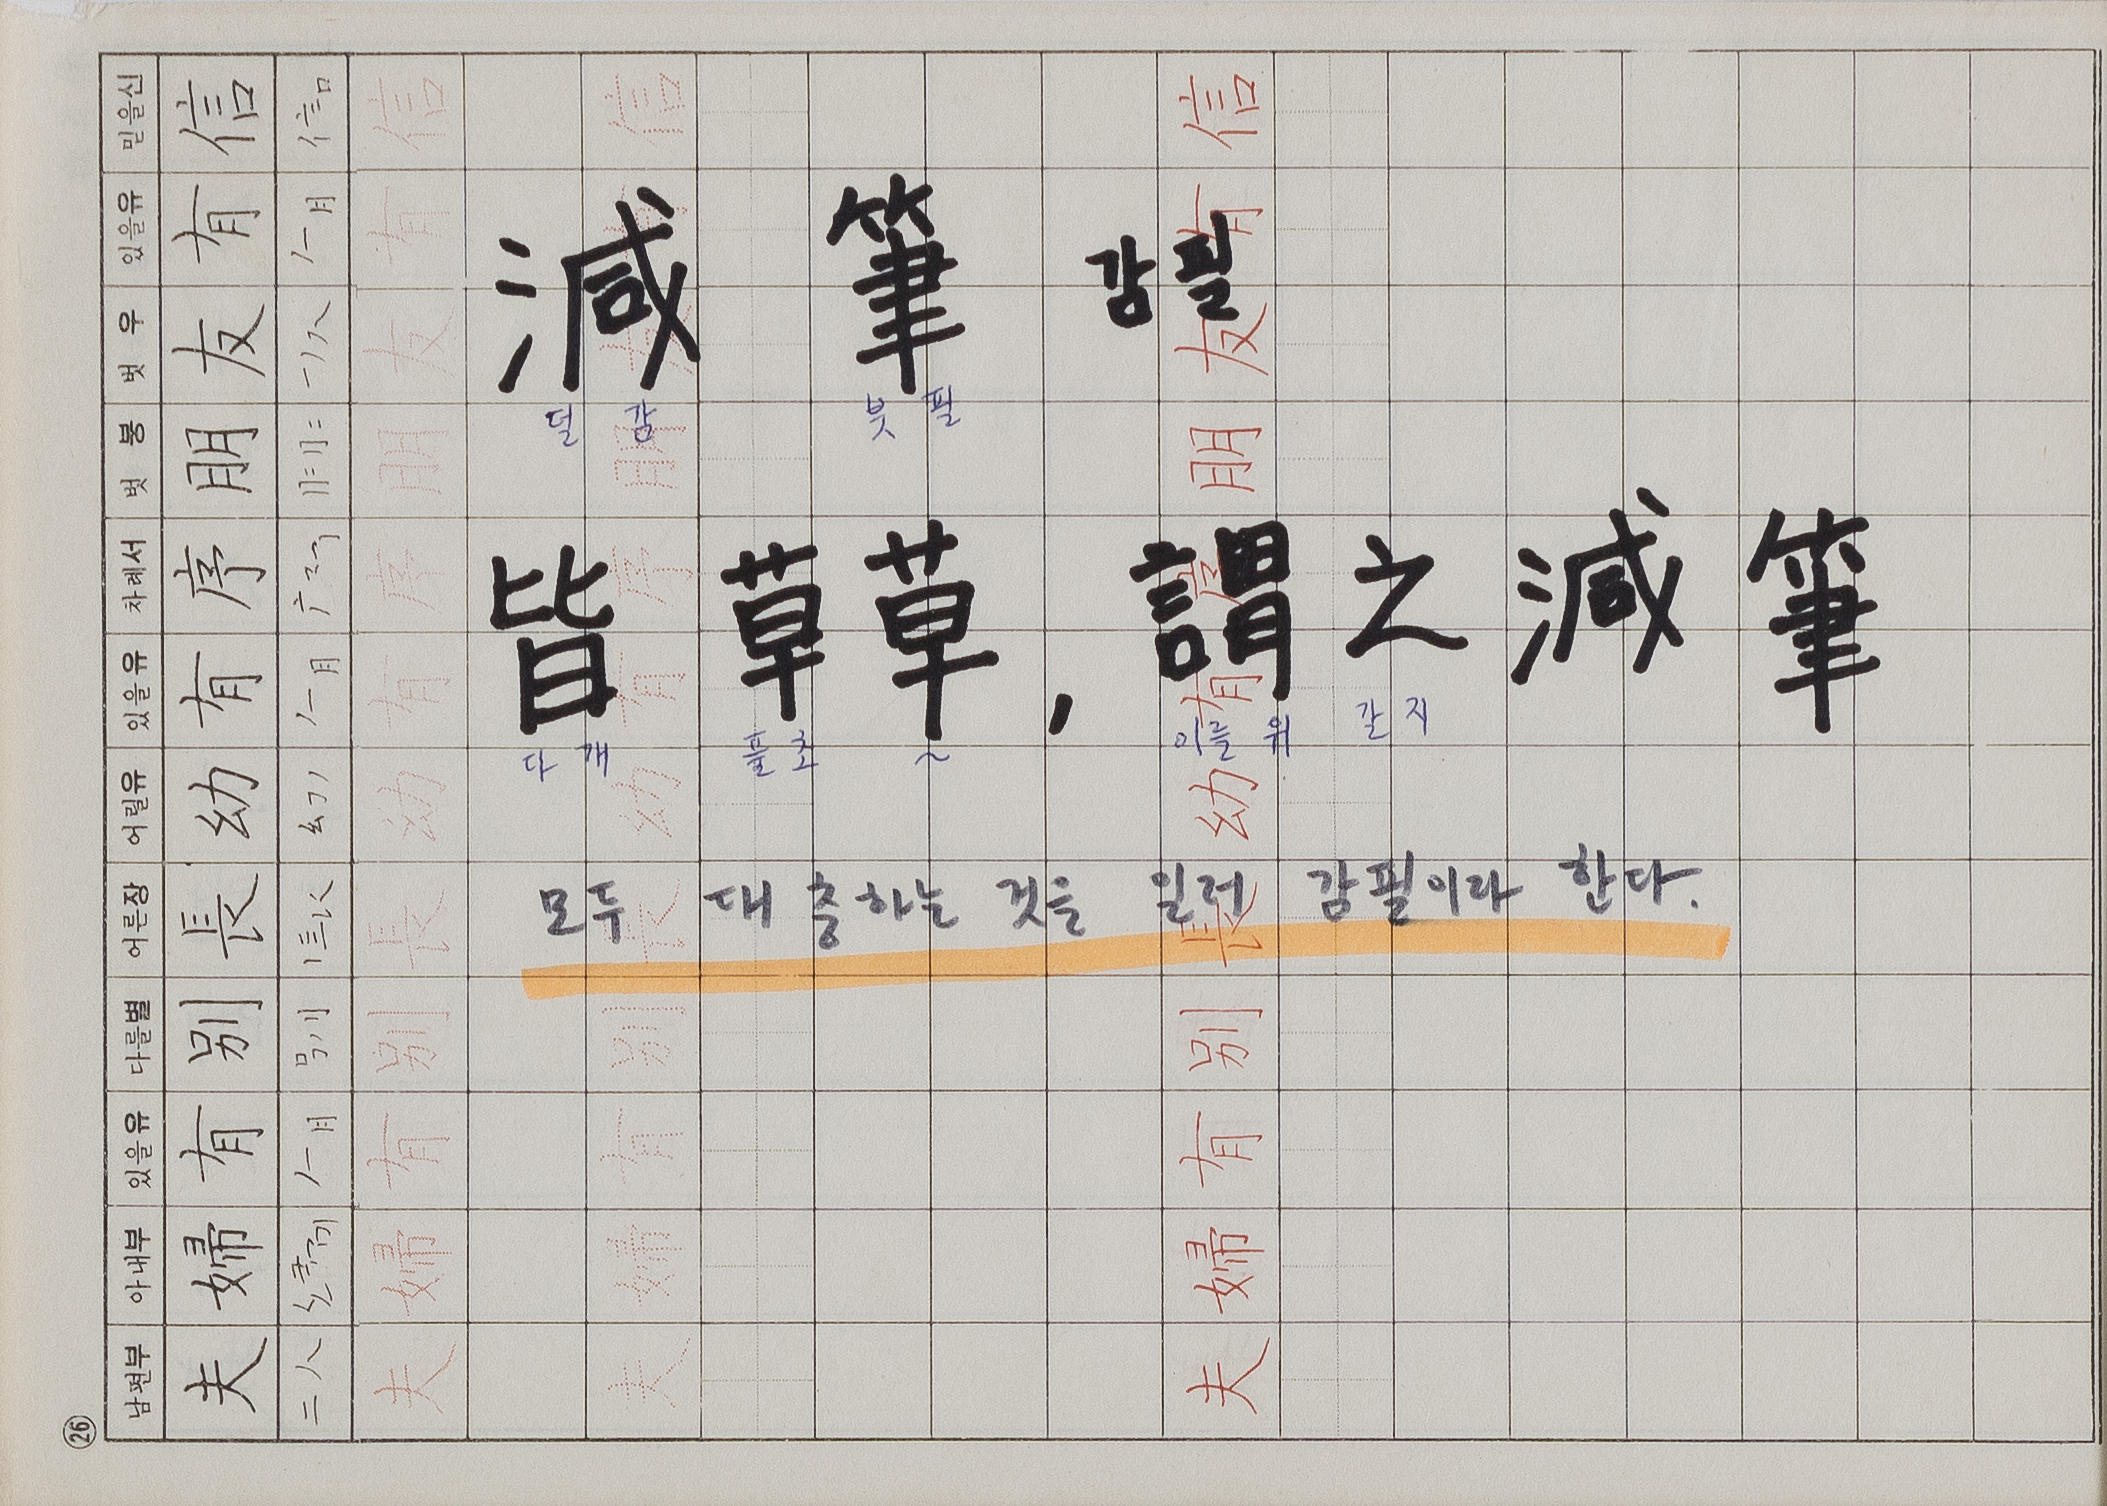 減 筆 감필
덜 감 붓 필
皆 草草, 謂之減筆
다 개 풀 초 ~ 이를 위 갈 지
모두 대충하는 것을 일러 감필이라 한다.
믿을신 信
있을유 有
벗 우 友
벗 붕 朋
차례서 序
있을유 有
어릴유 幼
어른장 長
다를별 別
있을유 有
아내부 婦
남편부 夫
信 有 友 朋 序 有 幼 長 別 有 婦 夫
信 有 友 朋 序 有 幼 長 別 有 婦 夫
信 有 友 朋 序 有 幼 長 別 有 婦 夫
26